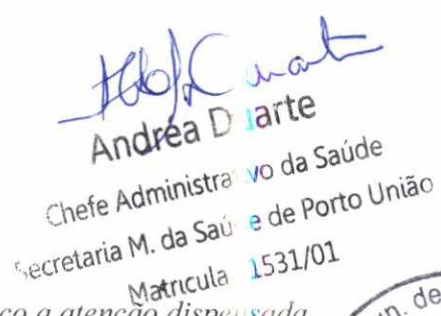 Andréa Duarte
Chefe Administrativo da Saúde
Secretaria M. da Saúde de Porto União
Matricula 1531/01
ço a atenção dispensada
n. de